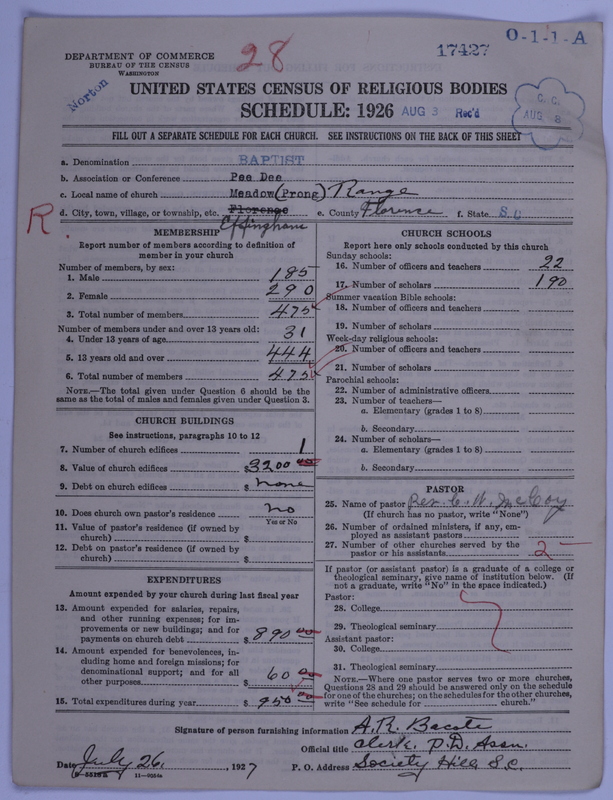 O-1-1-A
28
17427
DEPARTMENT OF COMMERCE
BUREAU OF THE CENSUS
WASHINGTON
Norton
UNITED STATES CENSUS OF RELIGIOUS BODIES
SCHEDULE: 1926 AUG 3 Rec'd
C. C. AUG 8
FILL OUT A SEPARATE SCHEDULE FOR EACH CHURCH. SEE INSTRUCTIONS ON THE BACK OF THIS SHEET
a. Denomination BAPTIST
b. Association or Conference Pee Dee
c. Local name of church Meadow (Prong) Range
d. City, town, village, or township, etc. Florence Effingham e. County Florence f. State S.C
R.
MEMBERSHIP
Report number of members according to definition of
member in your church
Number of members, by sex:
1. Male 185
2. Female 290
3. Total number of members 475
Number of members under and over 13 years old:
4. Under 13 years of age 31
5. 13 years old and over 444
6. Total number of members 475
NOTE.—The total given under Question 6 should be
same as the total of males and females given under Question 3.
CHURCH BUILDINGS
See instructions, paragraphs 10 to 12
7. Number of church edifices 1
8. Value of church edifices $3200 00
9. Debt on church edifices $ none
10. Does church own pastor's residence? no
Yes or No
11. Value of pastor's residence (if owned by
church) $
12. Debt on pastor's residence (if owned by
church) $
EXPENDITURES
Amount expended by your church during last fiscal year
13. Amount expended for salaries, repairs,
and other running expenses; for im-
provements or new buildings; and for
payments on church debt $ 890 00
14. Amount expended for benevolences, in-
cluding home and foreign missions; for
denominational support; and for all
other purposes $ 60 00
15. Total expenditures during year $ 950 00
CHURCH SCHOOLS
Report here only schools conducted by this church
Sunday schools:
16. Number of officers and teachers 22
17. Number of scholars 190
Summer vacation Bible schools:
18. Number of officers and teachers
19. Number of scholars
Week-day religious schools:
20. Number of officers and teachers
21. Number of scholars
Parochial schools:
22. Number of administrative officers
23. Number of teachers—
a. Elementary (grades 1 to 8)
b. Secondary
24. Number of scholars—
a. Elementary (grades 1 to 8)
b. Secondary
PASTOR
25. Name of pastor Rev. C. W. McCoy
(If church has no pastor, write "None")
26. Number of ordained ministers, if any, em-
ployed as assistant pastors
27. Number of other churches served by the
pastor or his assistants 2
If pastor (or assistant pastor) is a graduate of a college or
theological seminary, give name of institution below. (If
not a graduate, write "No" in the space indicated.)
Pastor:
28. College
29. Theological seminary
Assistant pastor:
30. College
31. Theological seminary
NOTE.—Where one pastor serves two or more churches,
Questions 28 and 29 should be answered only on the schedule
for one of the churches; on the schedules for the other churches,
write "See schedule for church."
Signature of person furnishing information A. R. Bacote
Official title Clerk P.D. Assn.
Date July 26, 1927 P. O. Address Society Hill, S.C.
11—9164a